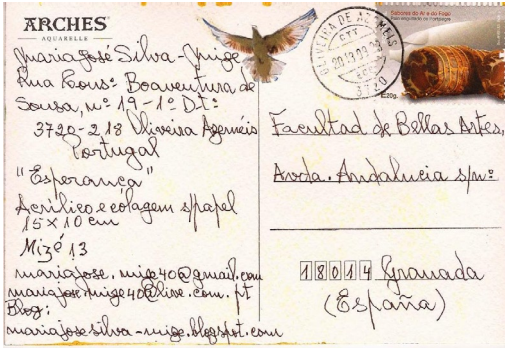 ARCHES
AQUARELLE
Maria José Silva - Mizé
Rua Cons.º Boaventura de
Sousa, nº 19 - 1º D.t:
3720-218 Oliveira Azeméis
Portugal
"Esperança"
Acrílico e colagem s/papel
15 x 10 cm
Mizé 13
mariajose.mize40@gmail.com
mariajosemize40@live.com.pt
Blog:
mariajosesilva-mize.blogspot.com
OLIVEIRA DE AZEMÉIS
CTT
3720
Sabores do Ar e do Fogo
E20g
Facultad de Bellas Artes,
Avda. Andalucia s/nº
18014 Granada
(España)